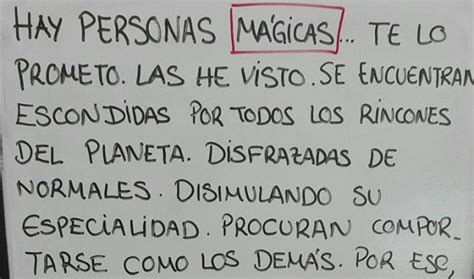 HAY PERSONAS MÁGICAS... TE LO
PROMETO. LAS HE VISTO. SE ENCUENTRAN
ESCONDIDAS POR TODOS LOS RINCONES
DEL PLANETA. DISFRAZADAS DE
NORMALES. DISIMULANDO SU
ESPECIALIDAD. PROCURAN COMPOR-
TARSE COMO LOS DEMÁS. POR ESO,